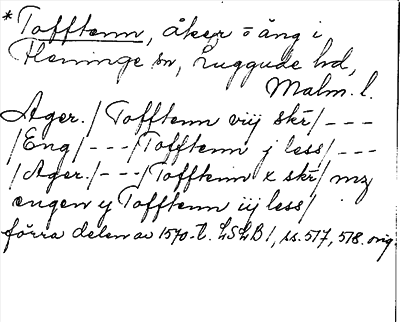 *Tofften, åker o äng i
Fleninge sn, Luggude hd,
Malm. l.
Ager. / Tofftenn viij skr / ---
/ Eng / --- / Tofftenn j less / ---
/ Ager. / --- / Tofftenn x skr / mz
engen y Tofftenn iij less /
förra delen av 1570-t. LSLB 1, ss. 517, 518. orig.